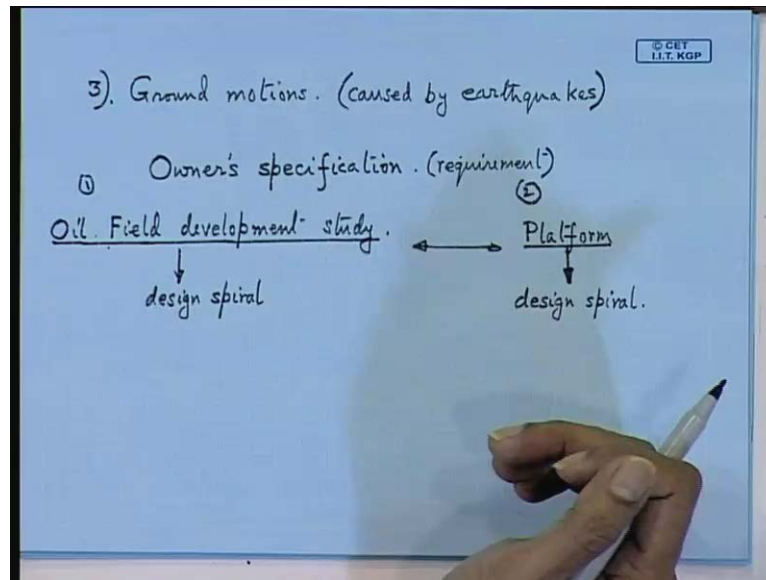 © CET
I.I.T. KGP
3). Ground motions. (caused by earthquakes)
Owner's specification. (requirement)
① ②
Oil Field development study. ↔ Platform
design spiral design spiral.